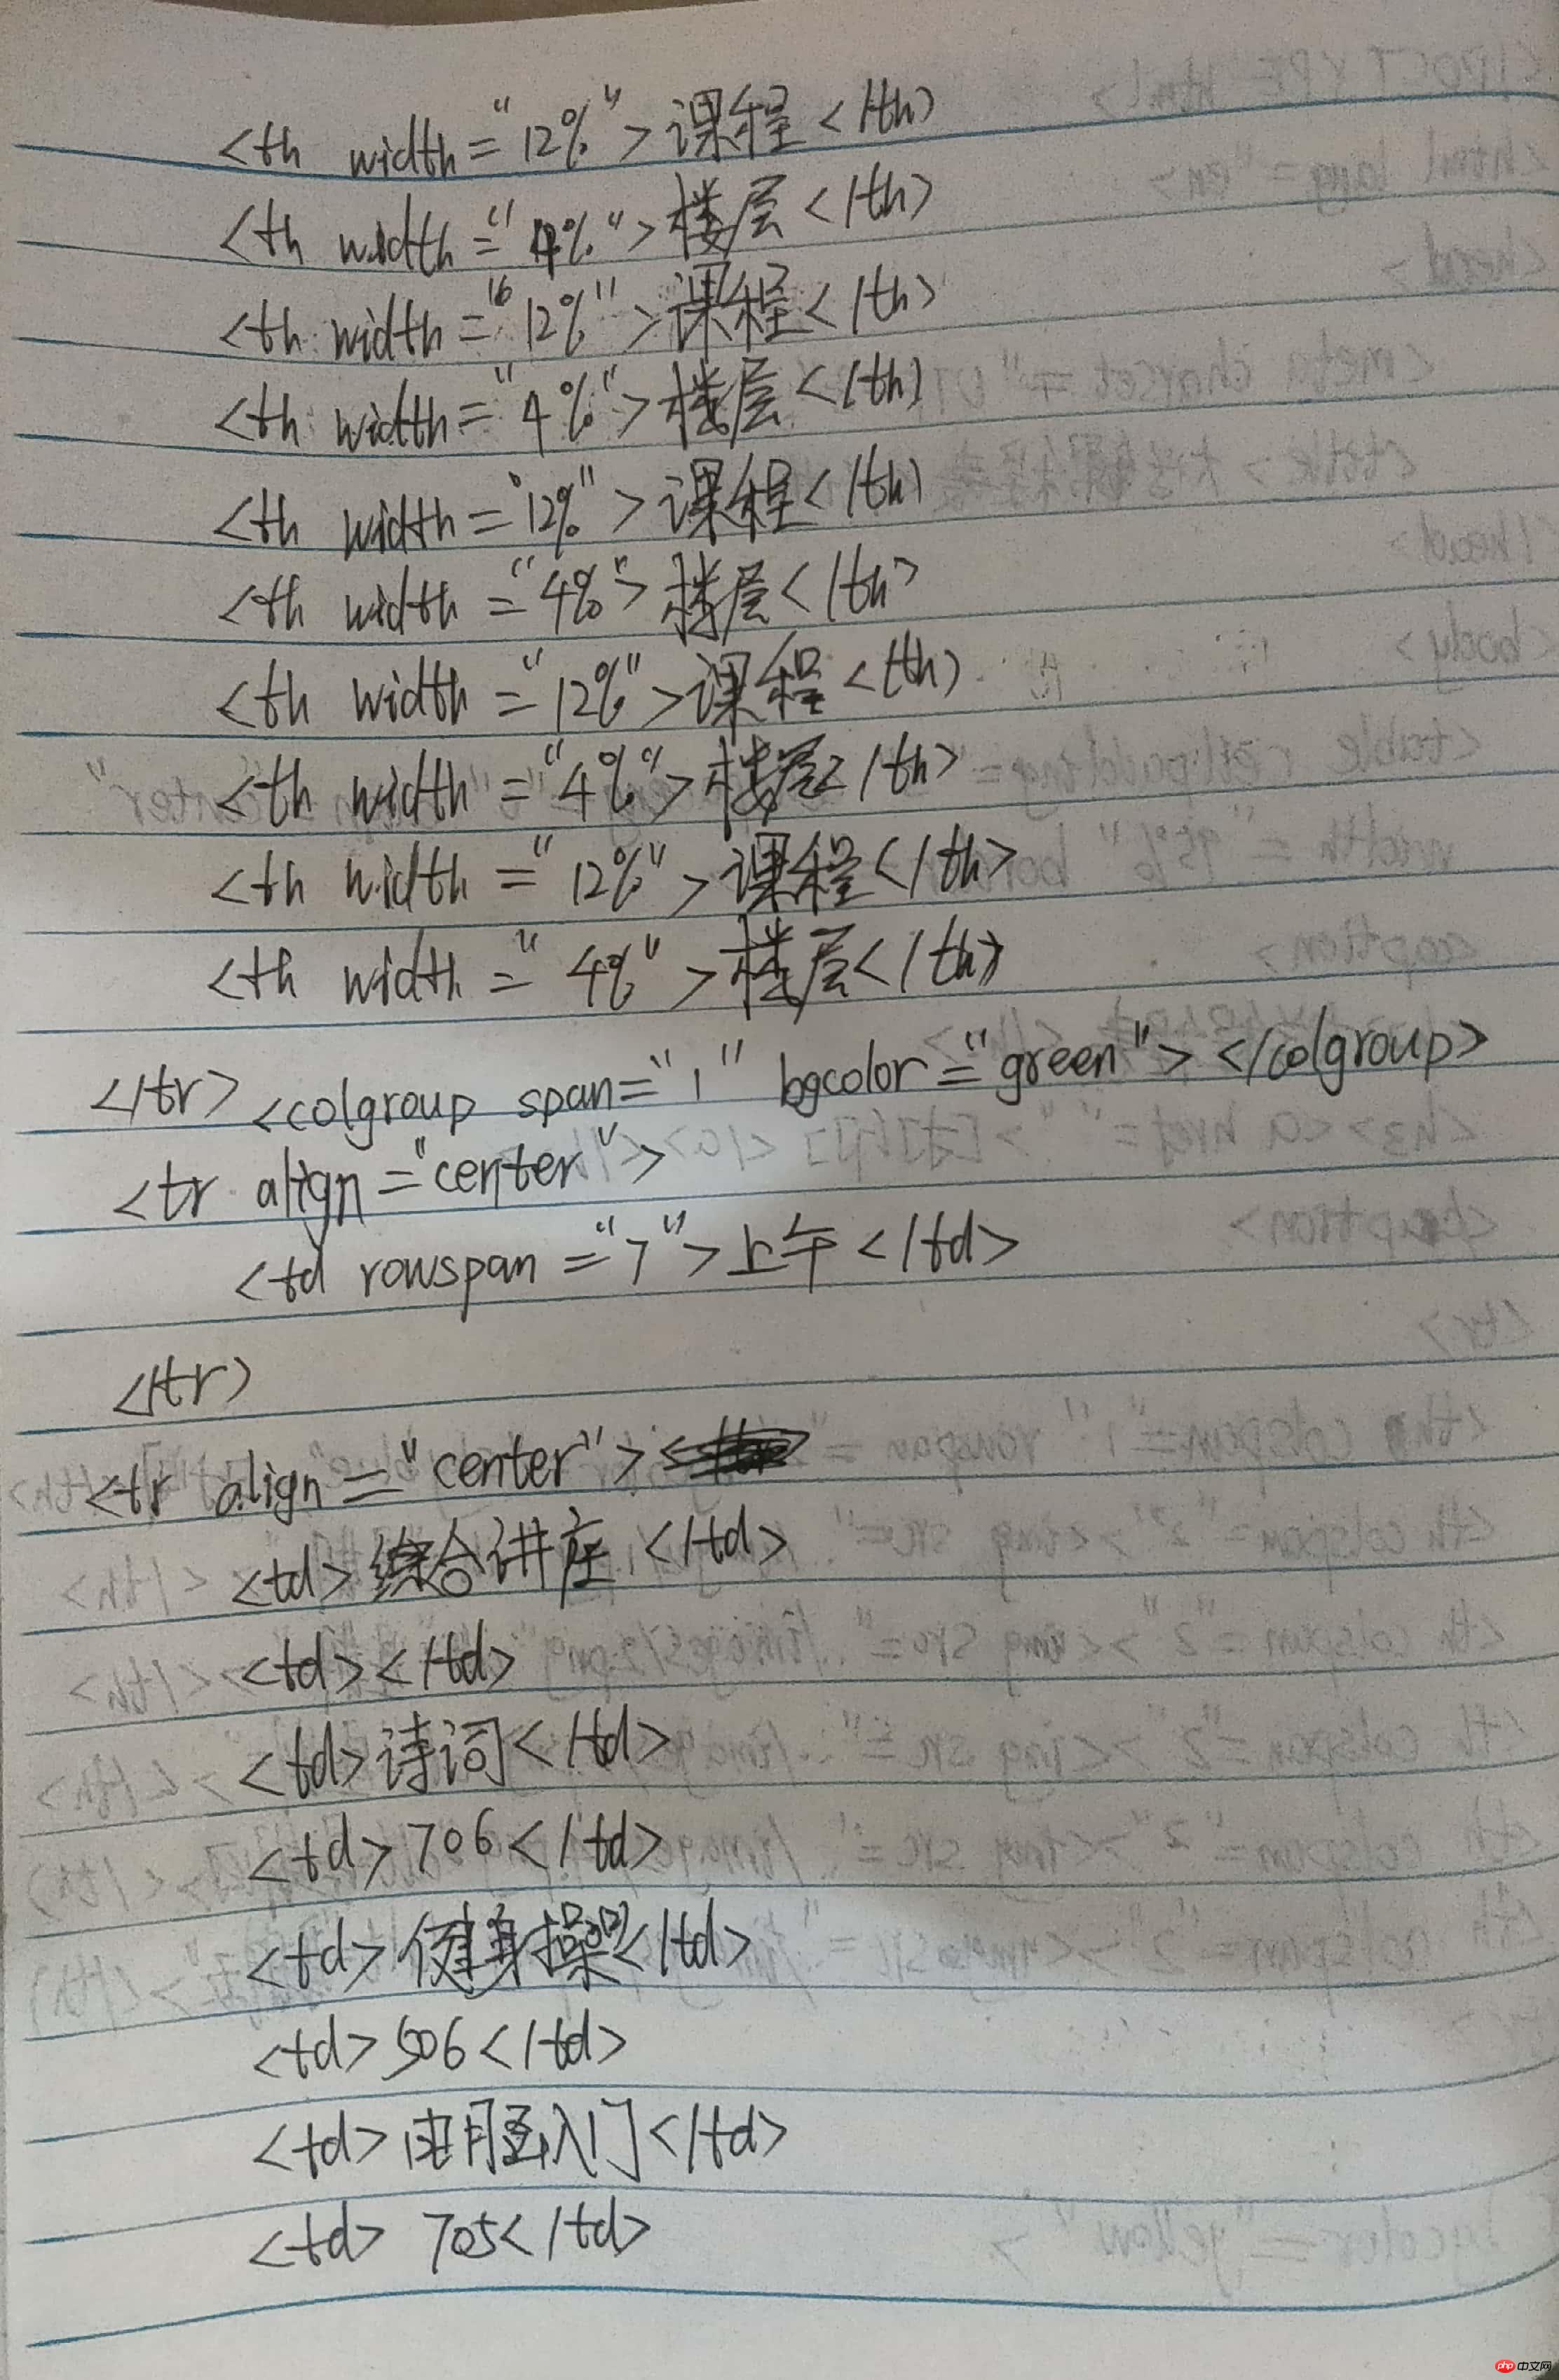 <th width="12%">课程</th>
<th width="4%">楼层</th>
<th width="12%">课程</th>
<th width="4%">楼层</th>
<th width="12%">课程</th>
<th width="4%">楼层</th>
<th width="12%">课程</th>
<th width="4%">楼层</th>
<th width="12%">课程</th>
<th width="4%">楼层</th>
</tr><colgroup span="1" bgcolor="green"></colgroup>
<tr align="center">
<td rowspan="7">上午</td>
</tr>
<tr align="center">
<td>综合讲座</td>
<td></td>
<td>诗词</td>
<td>706</td>
<td>健身操</td>
<td>506</td>
<td>入门</td>
<td>705</td>
php 中文网